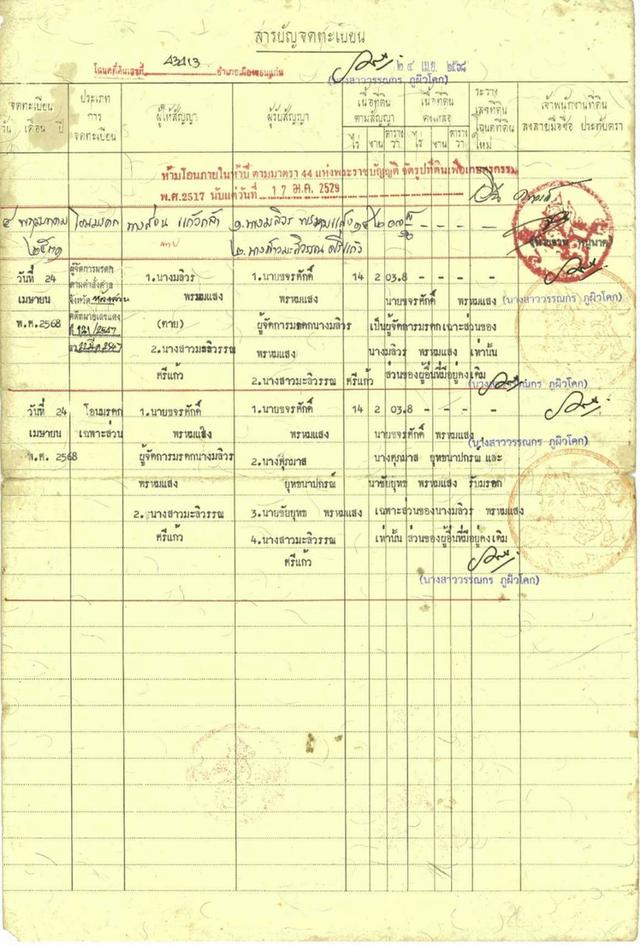 สารบัญจดทะเบียน
โฉนดที่ดินเลขที่ 43413 อำเภอเมืองขอนแก่น
๒๔ เม.ย. ๒๕๖๘
(นางสาววรรณกร ภูผิวโคก)
จดทะเบียน วัน เดือน ปี
ประเภทการจดทะเบียน
ผู้ให้สัญญา
ผู้รับสัญญา
เนื้อที่ดินตามสัญญา
ไร่ งาน ตารางวา
เนื้อที่ดินคงเหลือ
ไร่ งาน ตารางวา
ระวาง เลขที่ดิน โฉนดที่ดินใหม่
เจ้าพนักงานที่ดิน ลงลายมือชื่อ ประทับตรา
ห้ามโอนภายในห้าปี ตามมาตรา 44 แห่งพระราชบัญญัติ จัดรูปที่ดินเพื่อเกษตรกรรม
พ.ศ.2517 นับแต่วันที่ 17 ม.ค. 2529
พฤษภาคม โอนมรดก แก้วกล้า ๑.นางมลิวร พรหมแสง ๑๔ ๒
๒. ศรีแก้ว
วันที่ 24 ผู้จัดการมรดก 1.นางมลิวร 1.นายขจรศักดิ์ 14 2 03.8 - - - -
เมษายน ตามคำสั่งศาล พรหมแสง พรหมแสง นายขจรศักดิ์ พรหมแสง (นางสาววรรณกร ภูผิวโคก)
พ.ศ.2568 จังหวัด (ตาย) ผู้จัดการมรดกนางมลิวร เป็นผู้จัดการมรดกเฉพาะส่วนของ
คดีหมายเลขแดง
2.นางสาวมะลิวรรณ พรหมแสง นางมลิวร พรหมแสง เท่านั้น
ศรีแก้ว 2.นางสาวมะลิวรรณ ศรีแก้ว ส่วนของผู้อื่นที่มีอยู่คงเดิม
(นางสาววรรณกร ภูผิวโคก)
วันที่ 24 โอนมรดก 1.นายขจรศักดิ์ 1.นายขจรศักดิ์ 14 2 03.8 - - - -
เมษายน เฉพาะส่วน พรหมแสง พรหมแสง นายขจรศักดิ์ พรหมแสง (นางสาววรรณกร ภูผิวโคก)
พ.ศ. 2568 ผู้จัดการมรดกนางมลิวร 2.นางศุภมาส นางศุภมาส ยุทธนาปกรณ์ และ
พรหมแสง ยุทธนาปกรณ์ นายชัยยุทธ พรหมแสง รับมรดก
2.นางสาวมะลิวรรณ 3.นายชัยยุทธ พรหมแสง เฉพาะส่วนของนางมลิวร พรหมแสง
ศรีแก้ว 4.นางสาวมะลิวรรณ เท่านั้น ส่วนของผู้อื่นที่มีอยู่คงเดิม
ศรีแก้ว
(นางสาววรรณกร ภูผิวโคก)